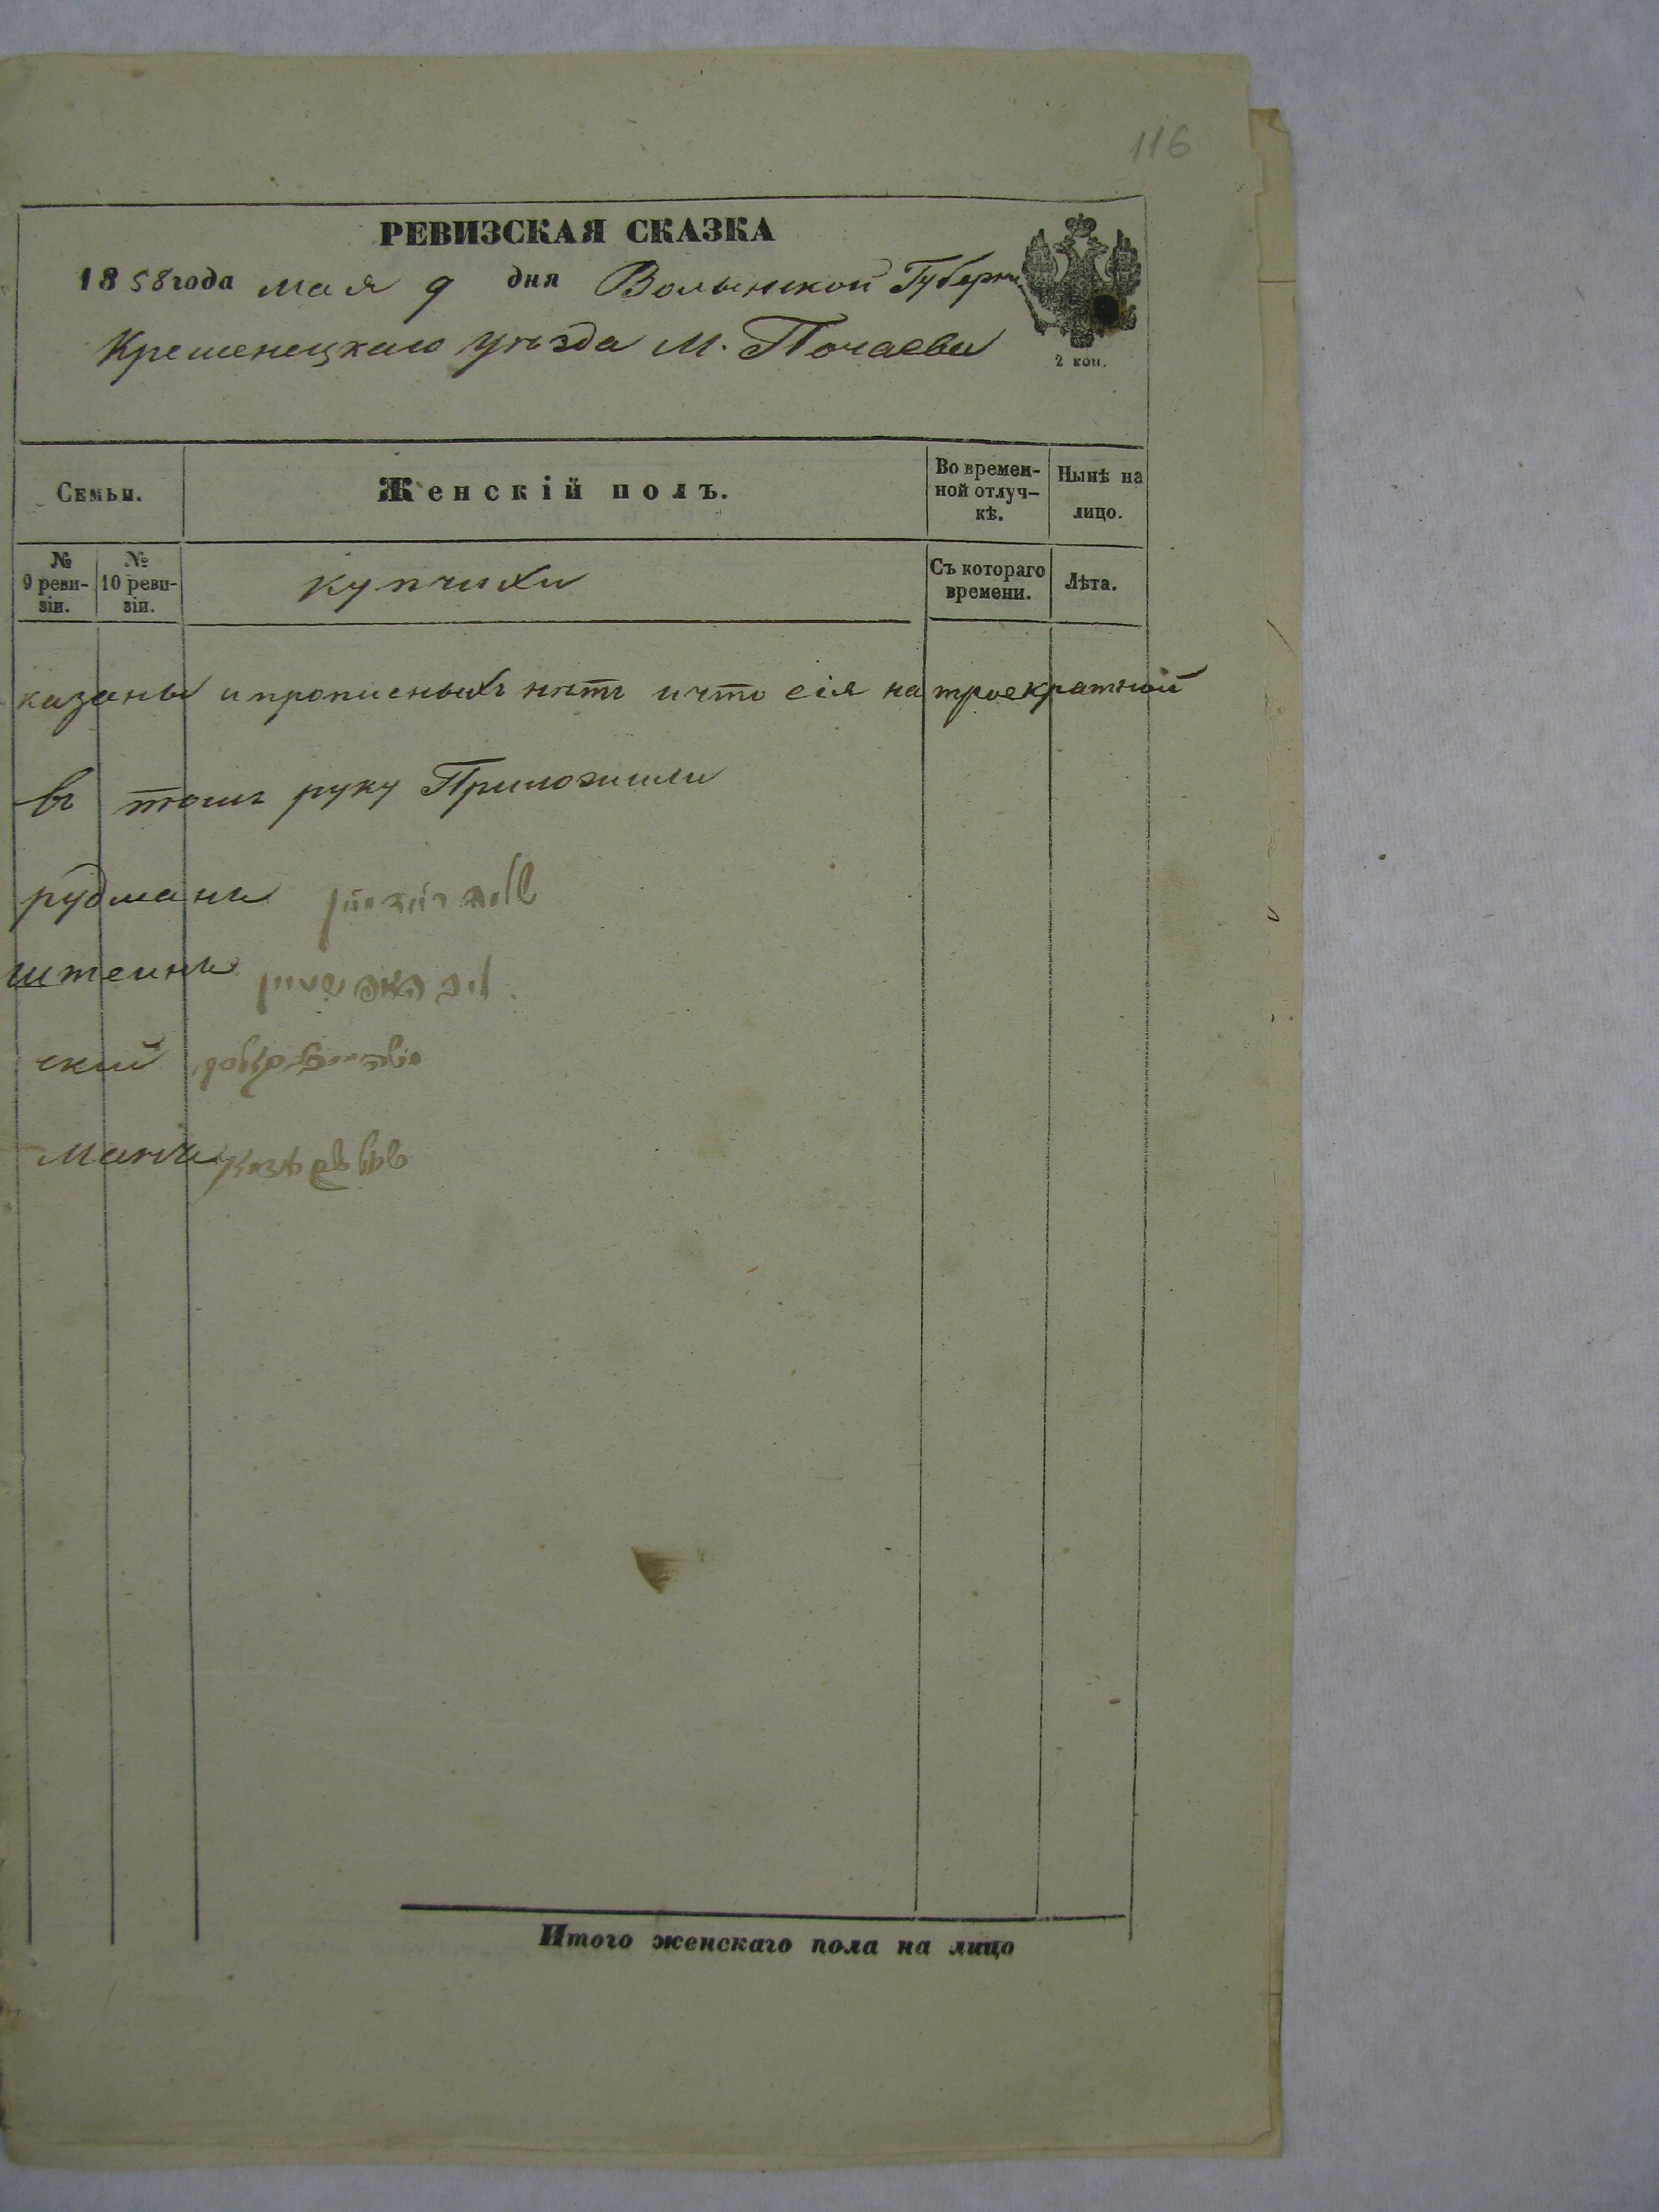 116
РЕВИЗСКАЯ СКАЗКА
1858 года мая 9 дня Волынской Губерни
Кременецкаго уѣзда М. Почаева
2 коп.
Семьи.
Женскій полъ.
Во времен-
ной отлуч-
кѣ.
Нынѣ на
лицо.
№
9 реви-
зіи.
№
10 реви-
зіи.
купчихи
Съ котораго
времени.
Лѣта.
казаны и прописныхъ нѣтъ и что сія на троекратной
въ томъ руку Приложили
рудманъ
штейнъ
скій
манъ
Итого женскаго пола на лицо